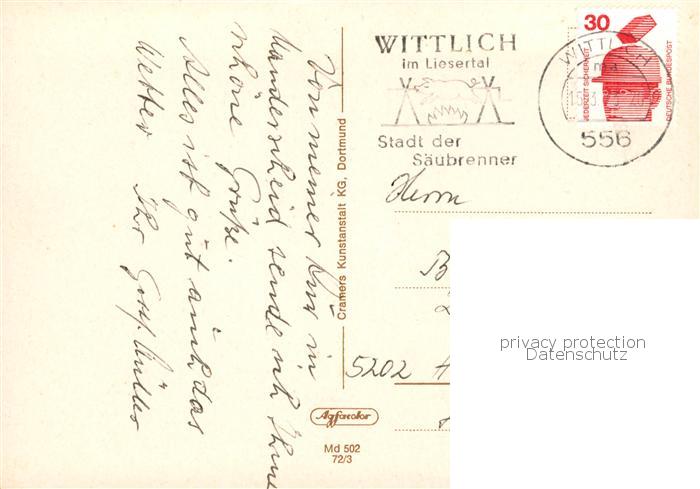 Von meiner Kur in
Manderscheid sende ich Ihnen
schöne Grüße.
Alles ist gut auch das
Wetter Ihr Gottf. Müller
Cramers Kunstanstalt KG, Dortmund
WITTLICH
im Liesertal
Stadt der
Säubrenner
WITTLICH
556
30
JEDERZEIT SICHERHEIT
DEUTSCHE BUNDESPOST
Herrn
B
5202 H
privacy protection
Datenschutz
Agfacolor
Md 502
72/3